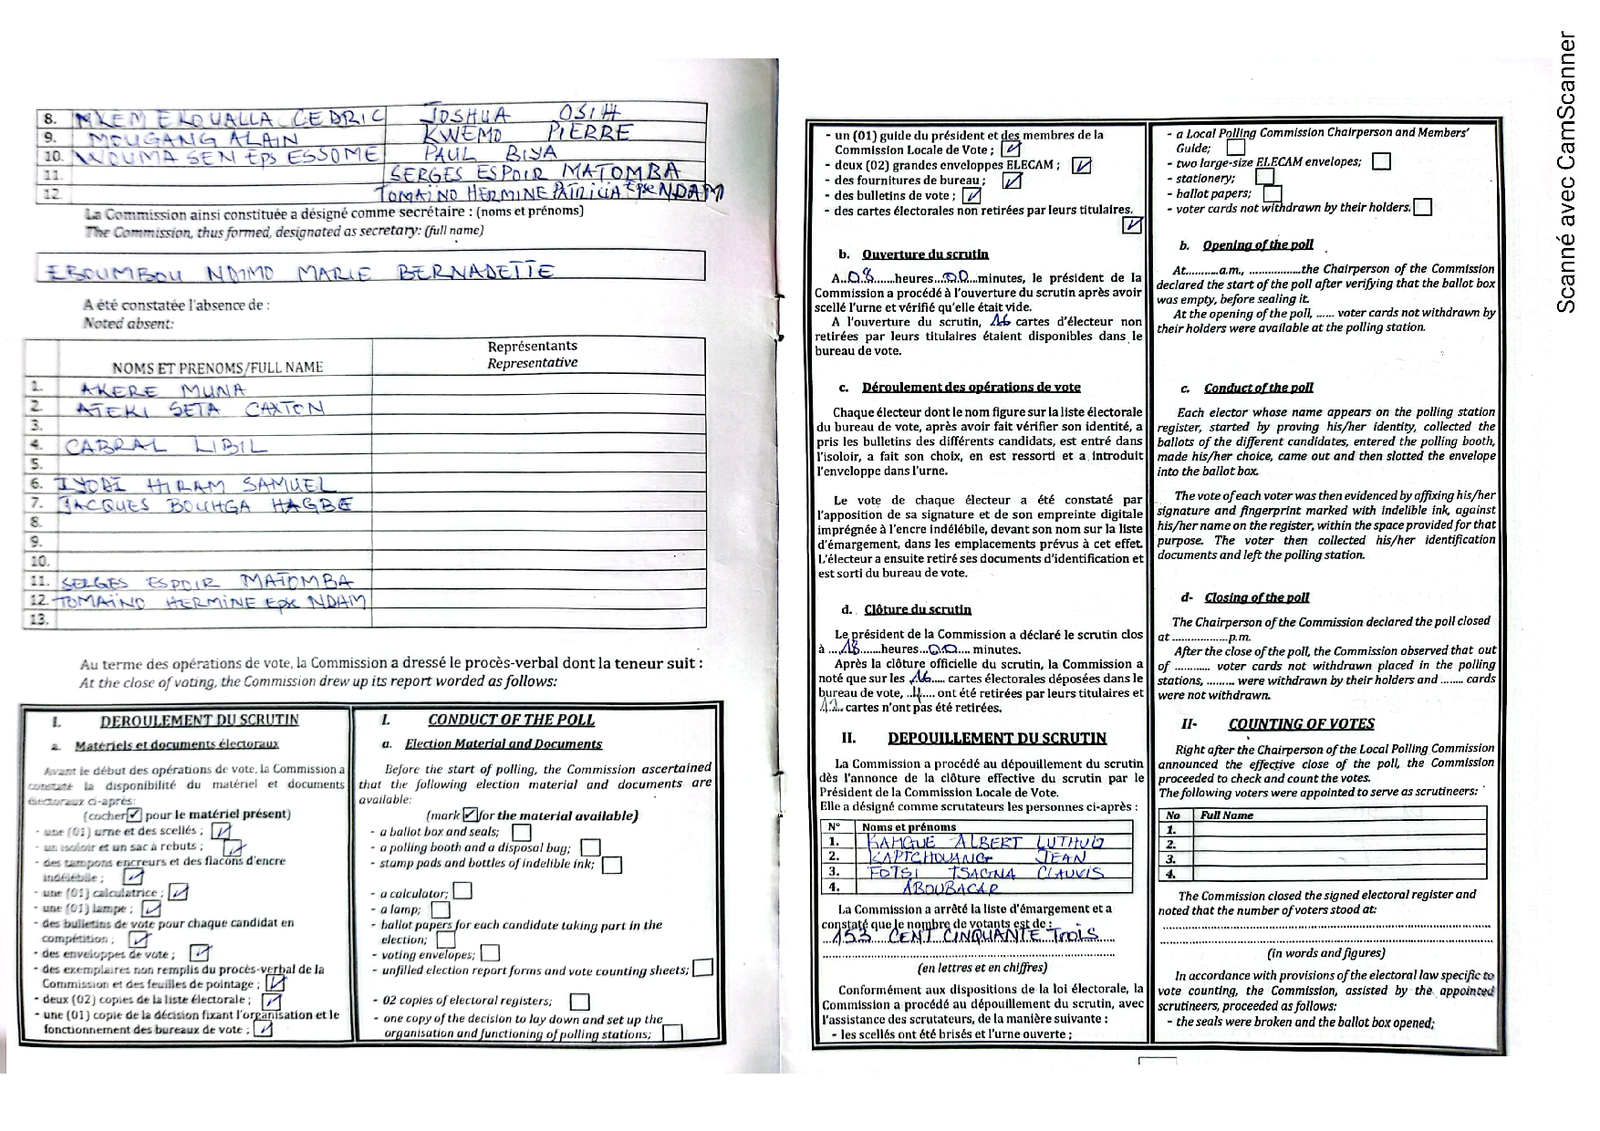 8. NKEM EKOUALLA CEDRIC JOSHUA OSIH
9. MOUGANG ALAIN KWEMO PIERRE
10. NDOUMA SEN Eps ESSOME PAUL BIYA
11. SERGES ESPOIR MATOMBA
12. TOMAÏNO HERMINE PATRICIA Epse NDAM
La Commission ainsi constituée a désigné comme secrétaire : (noms et prénoms)
The Commission, thus formed, designated as secretary: (full name)
EBOUMBOU NDIMO MARIE BERNADETTE
A été constatée l'absence de :
Noted absent:
NOMS ET PRENOMS/FULL NAME
Représentants
Representative
1. AKERE MUNA
2. ATEKI SETA CAXTON
3.
4. CABRAL LIBIL
5.
6. IYODI HIRAM SAMUEL
7. JACQUES BOUHGA HAGBE
8.
9.
10.
11. SERGES ESPOIR MATOMBA
12. TOMAÏNO HERMINE Epse NDAM
13.
Au terme des opérations de vote, la Commission a dressé le procès-verbal dont la teneur suit :
At the close of voting, the Commission drew up its report worded as follows:
I. DEROULEMENT DU SCRUTIN
a. Matériels et documents électoraux
Avant le début des opérations de vote, la Commission a
constaté la disponibilité du matériel et documents
électoraux ci-après:
(cocher ✓ pour le matériel présent)
- une (01) urne et des scellés ; ✓
- un isoloir et un sac à rebuts ; ✓
- des tampons encreurs et des flacons d'encre
indélébile ; ✓
- une (01) calculatrice ; ✓
- une (01) lampe ; ✓
- des bulletins de vote pour chaque candidat en
compétition ; ✓
- des enveloppes de vote ; ✓
- des exemplaires non remplis du procès-verbal de la
Commission et des feuilles de pointage ; ✓
- deux (02) copies de la liste électorale ; ✓
- une (01) copie de la décision fixant l'organisation et le
fonctionnement des bureaux de vote ; ✓
I. CONDUCT OF THE POLL
a. Election Material and Documents
Before the start of polling, the Commission ascertained
that the following election material and documents are
available:
(mark ✓ for the material available)
- a ballot box and seals;
- a polling booth and a disposal bug;
- stamp pads and bottles of indelible ink;
- a calculator;
- a lamp;
- ballot papers for each candidate taking part in the
election;
- voting envelopes;
- unfilled election report forms and vote counting sheets;
- 02 copies of electoral registers;
- one copy of the decision to lay down and set up the
organisation and functioning of polling stations;
- un (01) guide du président et des membres de la
Commission Locale de Vote ; ✓
- deux (02) grandes enveloppes ELECAM ; ✓
- des fournitures de bureau ; ✓
- des bulletins de vote ; ✓
- des cartes électorales non retirées par leurs titulaires. ✓
b. Ouverture du scrutin
A..08......heures...00...minutes, le président de la
Commission a procédé à l'ouverture du scrutin après avoir
scellé l'urne et vérifié qu'elle était vide.
A l'ouverture du scrutin, 16 cartes d'électeur non
retirées par leurs titulaires étaient disponibles dans le
bureau de vote.
c. Déroulement des opérations de vote
Chaque électeur dont le nom figure sur la liste électorale
du bureau de vote, après avoir fait vérifier son identité, a
pris les bulletins des différents candidats, est entré dans
l'isoloir, a fait son choix, en est ressorti et a introduit
l'enveloppe dans l'urne.
Le vote de chaque électeur a été constaté par
l'apposition de sa signature et de son empreinte digitale
imprégnée à l'encre indélébile, devant son nom sur la liste
d'émargement, dans les emplacements prévus à cet effet.
L'électeur a ensuite retiré ses documents d'identification et
est sorti du bureau de vote.
d. Clôture du scrutin
Le président de la Commission a déclaré le scrutin clos
à ...18......heures...00.... minutes.
Après la clôture officielle du scrutin, la Commission a
noté que sur les .16..... cartes électorales déposées dans le
bureau de vote, ..4.... ont été retirées par leurs titulaires et
12.. cartes n'ont pas été retirées.
II. DEPOUILLEMENT DU SCRUTIN
La Commission a procédé au dépouillement du scrutin
dès l'annonce de la clôture effective du scrutin par le
Président de la Commission Locale de Vote.
Elle a désigné comme scrutateurs les personnes ci-après :
N° Noms et prénoms
1. KAMGUE ALBERT LUTHULO
2. KAPTCHOUANG JEAN
3. FOTSI TSAGNA CLAUVIS
4. ABOUBACAR
La Commission a arrêté la liste d'émargement et a
constaté que le nombre de votants est de :
153 CENT CINQUANTE TROIS
(en lettres et en chiffres)
Conformément aux dispositions de la loi électorale, la
Commission a procédé au dépouillement du scrutin, avec
l'assistance des scrutateurs, de la manière suivante :
- les scellés ont été brisés et l'urne ouverte ;
- a Local Polling Commission Chairperson and Members'
Guide;
- two large-size ELECAM envelopes;
- stationery;
- ballot papers;
- voter cards not withdrawn by their holders.
b. Opening of the poll
At..........a.m., ..................the Chairperson of the Commission
declared the start of the poll after verifying that the ballot box
was empty, before sealing it.
At the opening of the poll, ...... voter cards not withdrawn by
their holders were available at the polling station.
c. Conduct of the poll
Each elector whose name appears on the polling station
register, started by proving his/her identity, collected the
ballots of the different candidates, entered the polling booth,
made his/her choice, came out and then slotted the envelope
into the ballot box.
The vote of each voter was then evidenced by affixing his/her
signature and fingerprint marked with indelible ink, against
his/her name on the register, within the space provided for that
purpose. The voter then collected his/her identification
documents and left the polling station.
d- Closing of the poll
The Chairperson of the Commission declared the poll closed
at .................p.m.
After the close of the poll, the Commission observed that out
of ........... voter cards not withdrawn placed in the polling
stations, ......... were withdrawn by their holders and ........ cards
were not withdrawn.
II- COUNTING OF VOTES
Right after the Chairperson of the Local Polling Commission
announced the effective close of the poll, the Commission
proceeded to check and count the votes.
The following voters were appointed to serve as scrutineers:
No Full Name
1.
2.
3.
4.
The Commission closed the signed electoral register and
noted that the number of voters stood at:
(in words and figures)
In accordance with provisions of the electoral law specific to
vote counting, the Commission, assisted by the appointed
scrutineers, proceeded as follows:
- the seals were broken and the ballot box opened;
Scanné avec CamScanner